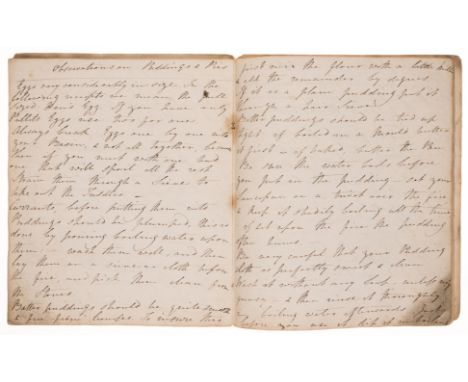 Observations on Puddings & Pies
Eggs vary considerably in size. In the
following receipts we mean the full
sized Hen's Egg. If you have only
Pullets Eggs use two for one
Always break Eggs one by one into
your Bason, & not all together because
then if you meet with one bad
one that will spoil all the rest
Strain them through a Sieve to
take out the
Currants, before putting them into
Puddings should be plumped, this is
done by pouring boiling water upon
them wash them well, and then
lay them on a sieve or cloth before
the fire, and pick them clean from
the Stones
Batter puddings should be quite smooth
& free from lumps. To insure this
first mix the flour with a little milk
add the remainder by degrees
If it is a plain pudding put it
through a hair Sieve
Batter puddings should be tied up
tight if boiled in a Mould butter
it first if baked, butter the Pan
Be sure the water boils before
you put in the pudding set your
Saucepan on a trivet over the fire
& keep it steadily boiling all the time
if set upon the fire the pudding
often burns
Be very careful that your Pudding
cloth is perfectly sweet & clean
Wash it without any Soap unless very
greasy & then rinse it thoroughly
in boiling water afterwards
before you use it dip it in boiling